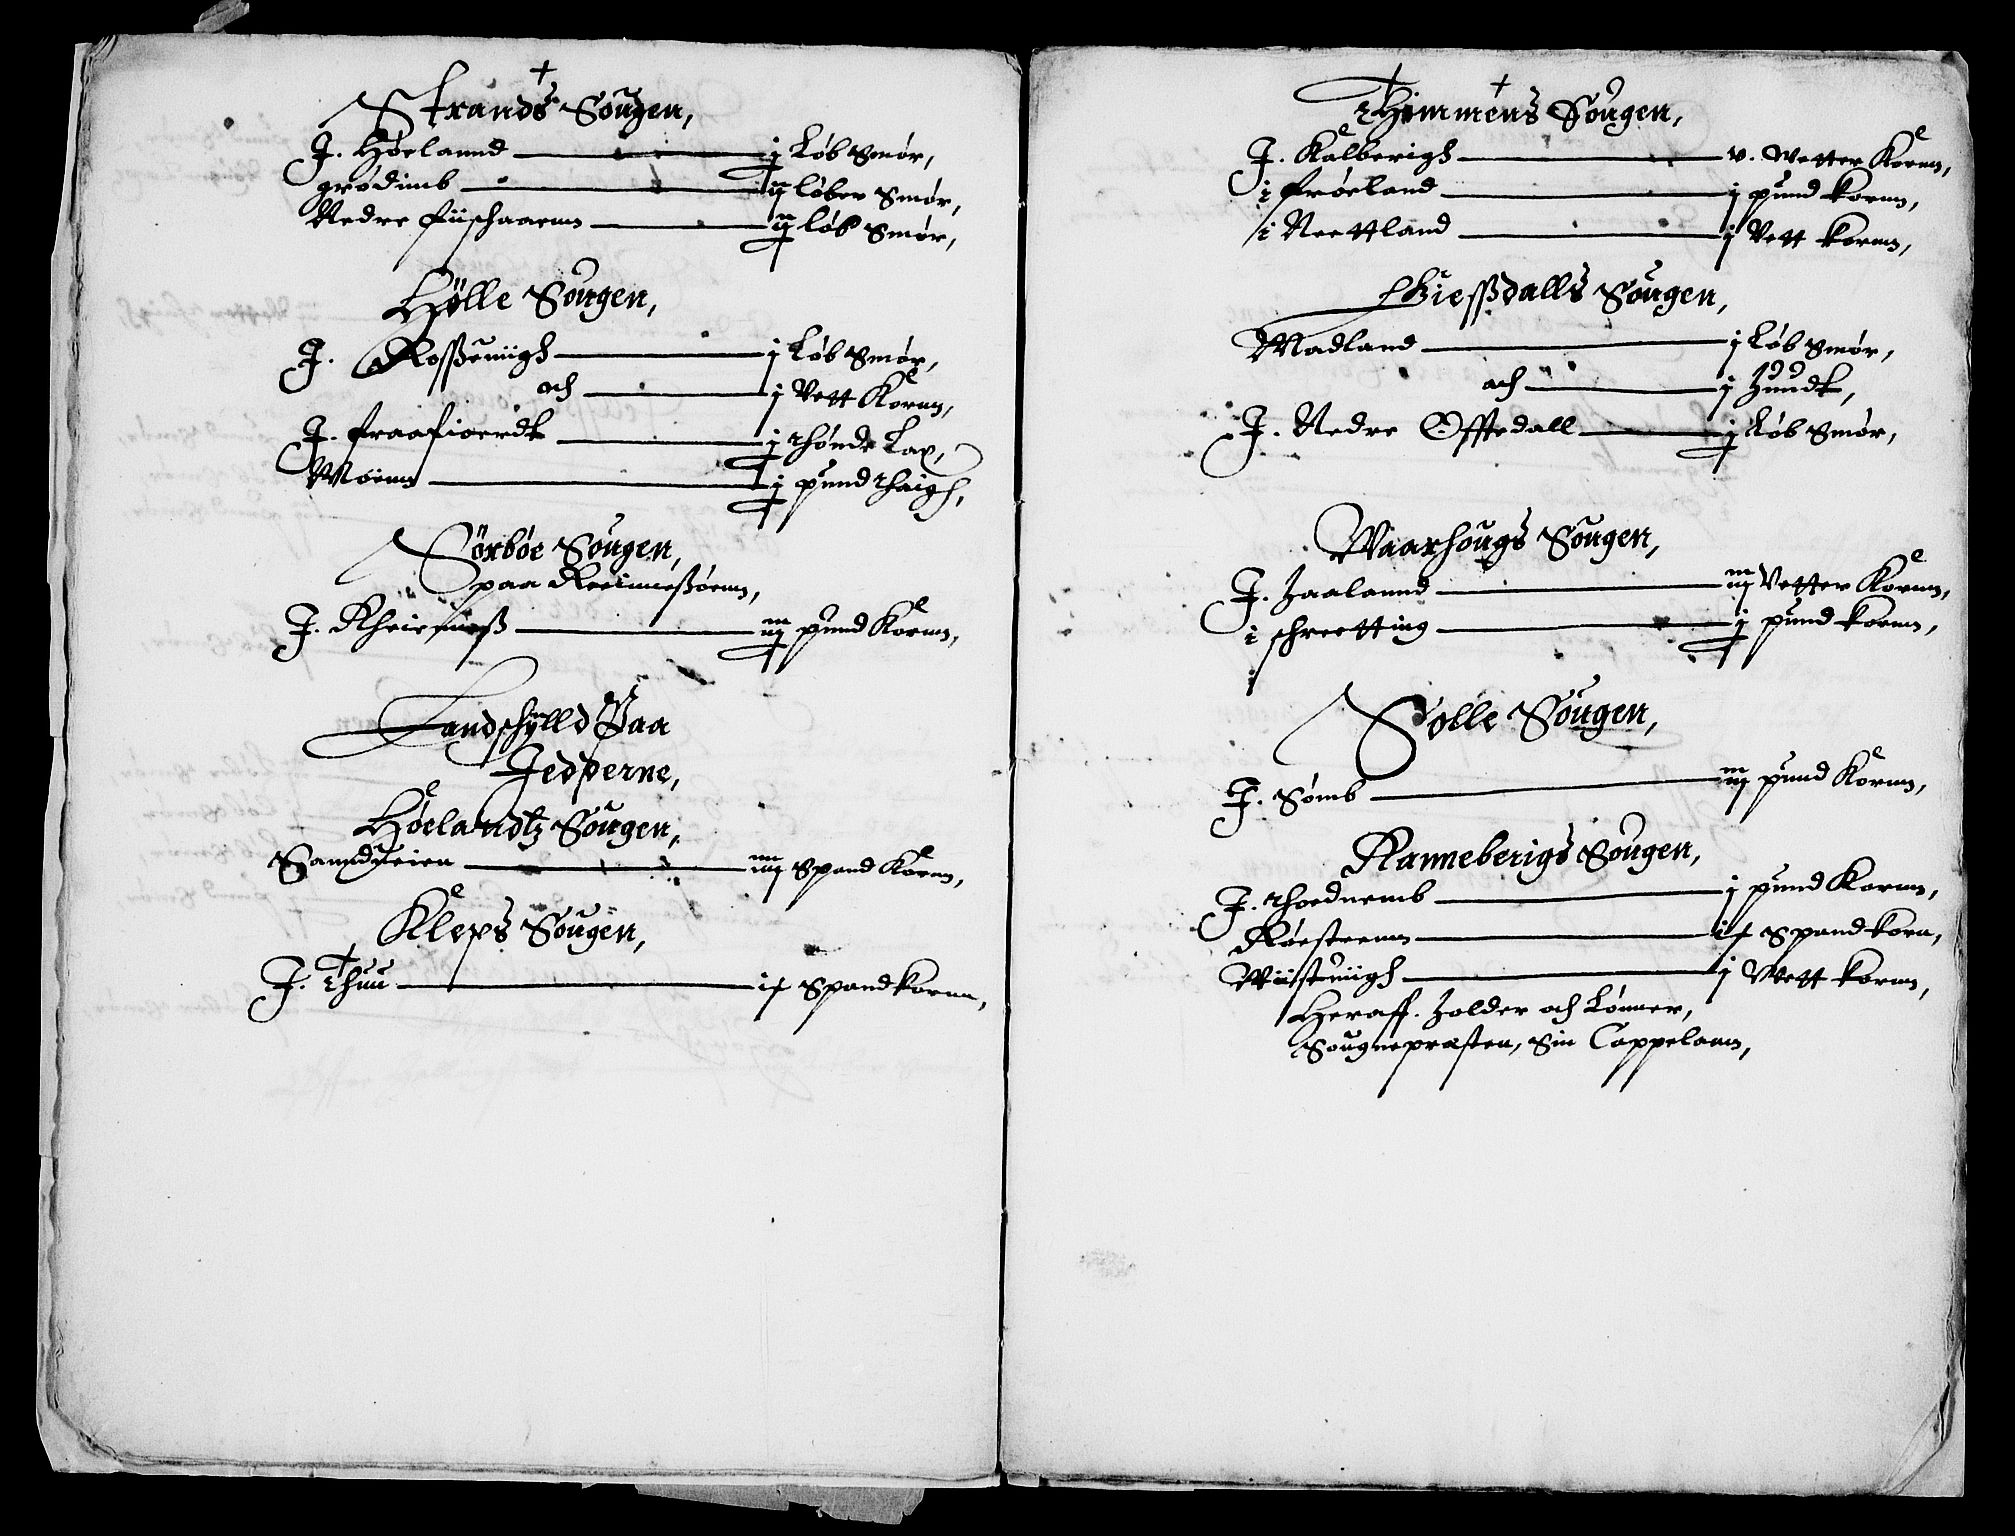 Strands Sougen,
J. Høelannd — j Løb Smør,
grødimb — ij løber Smør,
Nedre fiischaaenn — ij løb Smør,
Hølle Sougen,
J. Rosszeuiigh — j Løb Smør,
och — j Vett Kornn,
J. fraafioerdt — j thønde Lax,
Møenn — j pund thaigh,
Sörbøe Sougen,
paa Reeinnesøenn,
J. Rheiennesß — iij pund Kornn,
Landschylld Paa
Jedperne,
Høelandtz Sougen,
Sanndueien — iiij Spand Kornn,
Kleps Sougen,
J. thuu — ij Spand kornn,
Thimmens Sougen,
J. Kalberigh — v. Vetter Kornn,
i frøeland — j pund kornn,
i Neettland — j Vett kornn,
Giessdalls Sougen,
Madland — j Løb Smør,
och — j Hundt,
J. Nedre Offtedall — j Løb Smør,
Waarhougs Sougen,
J. Haalannd — iij Vetter Kornn,
i schreetting — j pund kornn,
Solle Sougen,
J. Sømb — iij pund Kornn,
Ranneberigs Sougen,
J. thoednemb — j pund Kornn,
Røesteenn — ij Spand korn,
Wiisteuiigh — j Vett kornn,
Heraff. Holder och Lønner,
Sougnepræsten, Sin Cappelann,